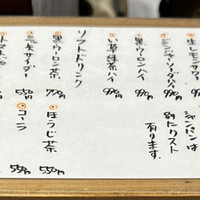 生レモンサワー 990円
ジンジャーハイ 990円
黒ウーロンハイ 990円
い草緑茶ハイ 990円
ソフトドリンク
黒ウーロン茶 770円
三ツ矢サイダー 550円
シャンパンは
別にリスト
有ります。
ほうじ茶 550円
コーラ 550円